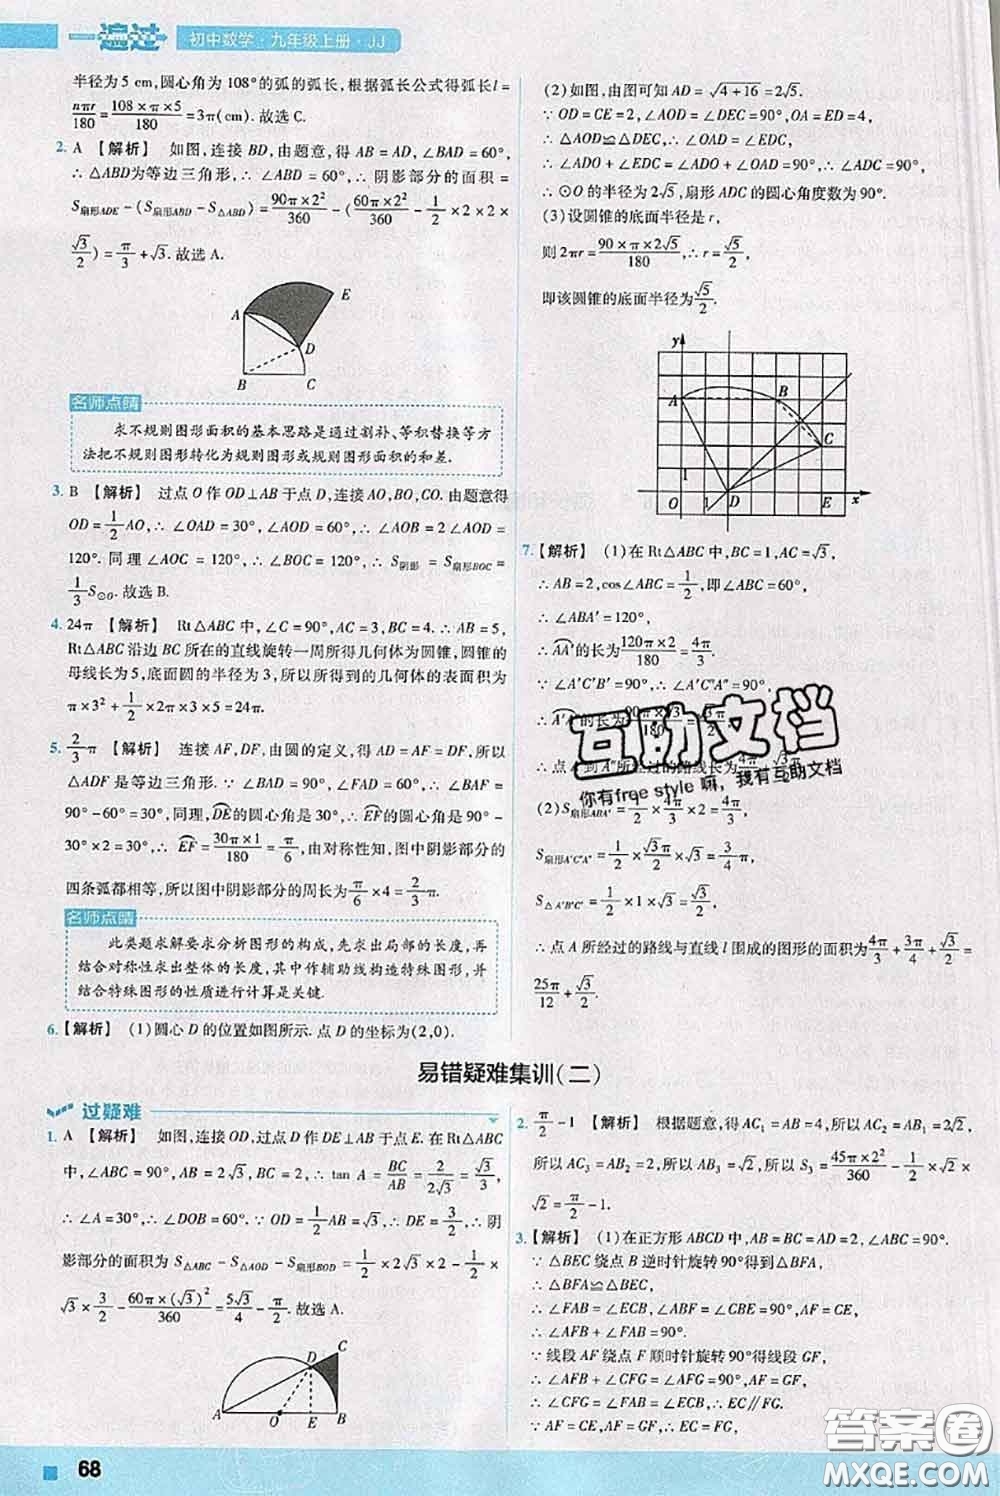 一遍过 初中数学·九年级上册·JJ
半径为5 cm,圆心角为108°的弧的弧长,根据弧长公式得弧长l=
nπr/180=108×π×5/180=3π(cm).故选C.
2. A 【解析】 如图,连接BD,由题意,得AB=AD,∠BAD=60°,
∴△ABD为等边三角形,∴∠ABD=60°,∴阴影部分的面积=
S扇形ADE-(S扇形ABD-S△ABD)=90π×2²/360-(60π×2²/360-1/2×2×2×
√3/2)=π/3+√3.故选A.
A
E
D
B
C
名师点睛
求不规则图形面积的基本思路是通过割补、等积替换等方
法把不规则图形转化为规则图形或规则图形面积的和差.
3. B 【解析】 过点O作OD⊥AB于点D,连接AO,BO,CO.由题意得
OD=1/2AO,∴∠OAD=30°,∴∠AOD=60°,∴∠AOB=2∠AOD=
120°.同理∠AOC=120°,∴∠BOC=120°,∴S阴影=S扇形BOC=
1/3S⊙O.故选B.
4. 24π 【解析】 Rt△ABC中,∠C=90°,AC=3,BC=4.∴AB=5,
Rt△ABC沿边BC所在的直线旋转一周所得几何体为圆锥,圆锥的
母线长为5,底面圆的半径为3,所以所得到的几何体的表面积为
π×3²+1/2×2π×3×5=24π.
5. 2/3π 【解析】 连接AF,DF,由圆的定义,得AD=AF=DF,所以
△ADF是等边三角形.∵∠BAD=90°,∠FAD=60°,∴∠BAF=
90°-60°=30°,同理,DE的圆心角是30°,∴EF的圆心角是90°-
30°×2=30°,∴EF=30π×1/180=π/6,由对称性知,图中阴影部分的
四条弧都相等,所以图中阴影部分的周长为π/6×4=2/3π.
名师点睛
此类题求解要求分析图形的构成,先求出局部的长度,再
结合对称性求出整体的长度,其中作辅助线构造特殊图形,并
结合特殊图形的性质进行计算是关键.
6.【解析】 (1)圆心D的位置如图所示.点D的坐标为(2,0).
(2)如图,由图可知AD=√4+16=2√5.
∵OD=CE=2,∠AOD=∠DEC=90°,OA=ED=4,
∴△AOD≌△DEC,∴∠OAD=∠EDC,
∴∠ADO+∠EDC=∠ADO+∠OAD=90°,∴∠ADC=90°,
∴⊙O的半径为2√5,扇形ADC的圆心角度数为90°.
(3)设圆锥的底面半径是r,
则2πr=90×π×2√5/180,∴r=√5/2,
即该圆锥的底面半径为√5/2.
y
A
B
C
1
O
1
D
E
x
7.【解析】 (1)在Rt△ABC中,BC=1,AC=√3,
∴AB=2,cos∠ABC=1/2,即∠ABC=60°,
∴∠ABA′=120°,
∴AA′的长为120π×2/180=4π/3.
∵∠A′C′B′=90°,∴∠A′C″A″=90°,
∴点A到A″所经过的路线长为
(2)S扇形ABA′=1/2×4π/3×2=4π/3,
S扇形A′C″A″=1/2×√3π/2×√3=3/4π,
S△A′B′C′=1/2×1×√3=√3/2,
∴点A所经过的路线与直线l围成的图形的面积为4π/3+3π/4+√3/2=
25π/12+√3/2.
互助文档
你有free style 嘛，我有互助文档
易错疑难集训(二)
过疑难
1. A 【解析】 如图,连接OD,过点D作DE⊥AB于点E.在Rt△ABC
中,∠ABC=90°,AB=2√3,BC=2,∴tan A=BC/AB=2/2√3=√3/3,
∴∠A=30°,∴∠DOB=60°.∵OD=1/2AB=√3,∴DE=3/2,∴阴
影部分的面积为S△ABC-S△AOD-S扇形BOD=1/2×2√3×2-1/2×
√3×3/2-60π×(√3)²/360=5√3/4-π/2.故选A.
C
D
A
O
E
B
2. π/2-1 【解析】 根据题意,得AC₁=AB=4,所以AC₂=AB₁=2√2,
所以AC₃=AB₂=2,所以AB₃=√2,所以S₃=45π×2²/360-1/2×√2×
√2=π/2-1.
3.【解析】 (1)在正方形ABCD中,AB=BC=AD=2,∠ABC=90°.
∵△BEC绕点B逆时针旋转90°得到△BFA,
∴△BFA≌△BEC,
∴∠FAB=∠ECB,∠ABF=∠CBE=90°,AF=CE,
∴∠AFB+∠FAB=90°.
∵线段AF绕点F顺时针旋转90°得线段GF,
∴∠AFB+∠CFG=∠AFG=90°,AF=GF,
∴∠CFG=∠FAB=∠ECB,∴EC∥FG.
∵AF=CE,AF=GF,∴EC=FG,
68
答案圈
MXQE.COM